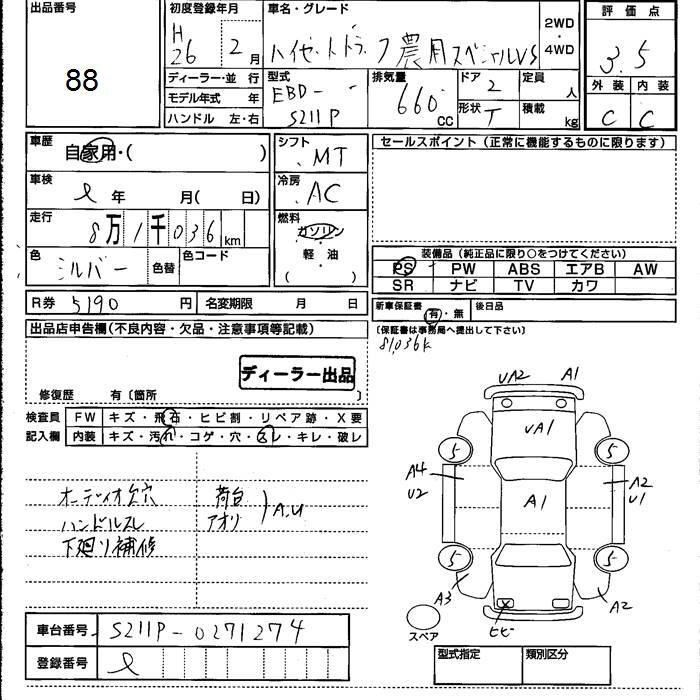 出品番号
88
初度登録年月
H 26 年 2月
車名・グレード
ハイゼットトラック農用スペシャルVS
2WD
4WD
評価点
3.5
外装 内装
C C
ディーラー・並行
モデル年式 年
ハンドル 左・右
型式
EBD-
S211P
排気量
660 CC
ドア 2
形状 T
定員 人
積載 kg
車歴
自家用・( )
シフト
MT
セールスポイント (正常に機能するものに限ります)
車検
年 月( 日)
冷房
AC
走行
8万1千036km
燃料
ガソリン
・
軽・油
( )
色
シルバー
色替
色コード
装備品 (純正品に限り○をつけてください)
PS PW ABS エアB AW
SR ナビ TV カワ
R券 5190 円
名変期限 月 日
新車保証書
有・無
後日品
(保証書は事務局へ提出して下さい)
81,036k
出品店申告欄 (不良内容・欠品・注意事項等記載)
ディーラー出品
修復歴 有〔箇所 〕
検査員
記入欄
FW キズ・飛石・ヒビ割・リペア跡・X要
内装 キズ・汚れ・コゲ・穴・スレ・キレ・破レ
オーディオ欠穴
ハンドルスレ
下廻り補修
荷台
アオリ
A.U
UA2 A1
UA1
5 5
A4
U2
A1
A2
U1
5 5
A3
A2
ヒビ
スペア
車台番号 S211P-0271274
登録番号
型式指定 類別区分